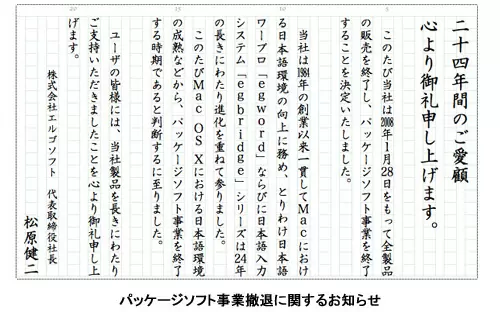 二十四年間のご愛顧
心より御礼申し上げます。
このたび当社は2008年1月28日をもって全製品
の販売を終了し、パッケージソフト事業を終了
することを決定いたしました。
当社は1984年の創業以来一貫してMacにおけ
る日本語環境の向上に務め、とりわけ日本語
ワープロ「egword」ならびに日本語入力
システム「egbridge」シリーズは24年
の長きにわたり進化を重ねて参りました。
このたびMac OS Xにおける日本語環境
の成熟などから、パッケージソフト事業を終了
する時期であると判断するに至りました。
ユーザの皆様には、当社製品を長きにわたり
ご支持いただきましたことを心より御礼申し上
げます。
株式会社エルゴソフト 代表取締役社長
松原健二
パッケージソフト事業撤退に関するお知らせ